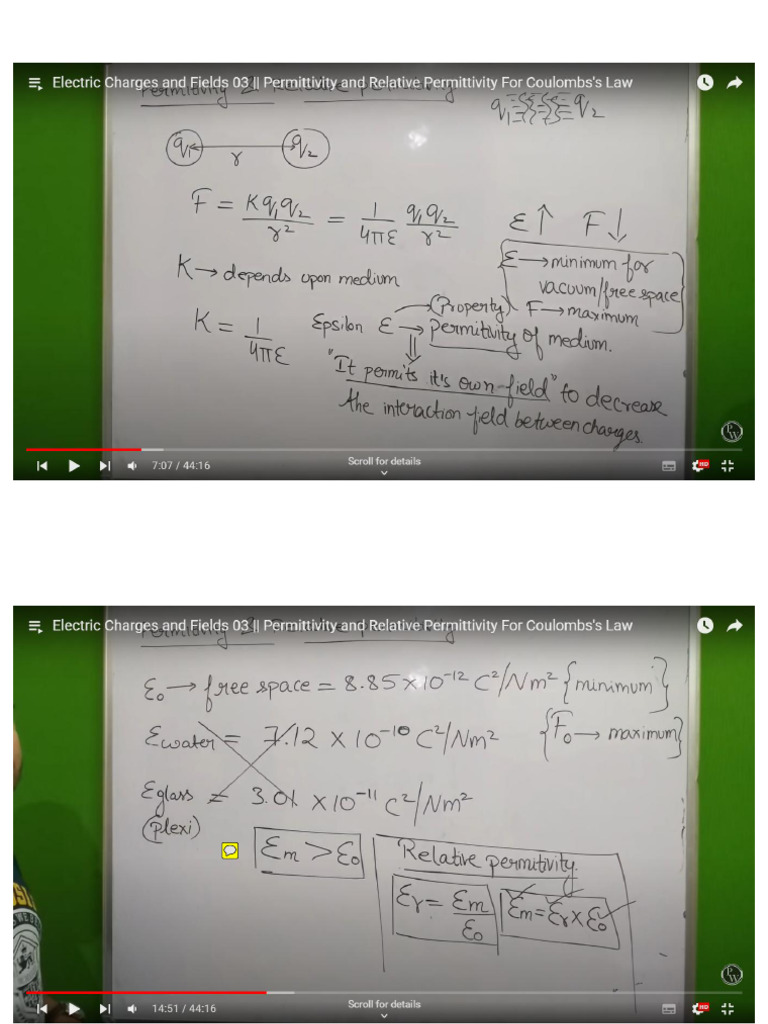 Electric Charges and Fields 03 || Permittivity and Relative Permittivity For Coulombs's Law
Permitivity & Relative permitivity
q1 q2
q1 q2
r
F = Kq1q2/r² = 1/4πε q1q2/r²
ε↑ F↓
K → depends upon medium
ε → minimum for
vacuum/free space
F → maximum
K = 1/4πε
Epsilon ε → (Property)
permitivity of medium.
"It permits it's own-field" to decrease
the interaction field between charges.
PW
7:07 / 44:16
Scroll for details
HD
Electric Charges and Fields 03 || Permittivity and Relative Permittivity For Coulombs's Law
Permitivity & Relative permitivity
ε0 → free space = 8.85 × 10⁻¹² C²/Nm² {minimum}
εwater = 7.12 × 10⁻¹⁰ C²/Nm² {F0 → maximum}
εglass = 3.01 × 10⁻¹¹ C²/Nm²
(plexi)
εm > ε0
Relative permitivity
εr = εm/ε0
εm = εr × ε0
PW
14:51 / 44:16
Scroll for details
HD